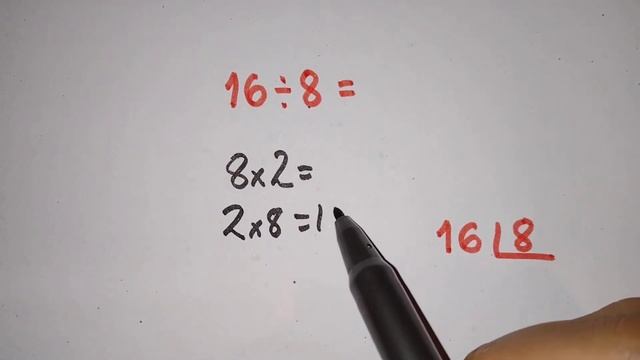 16÷8=
8×2=
2×8=1
16 8